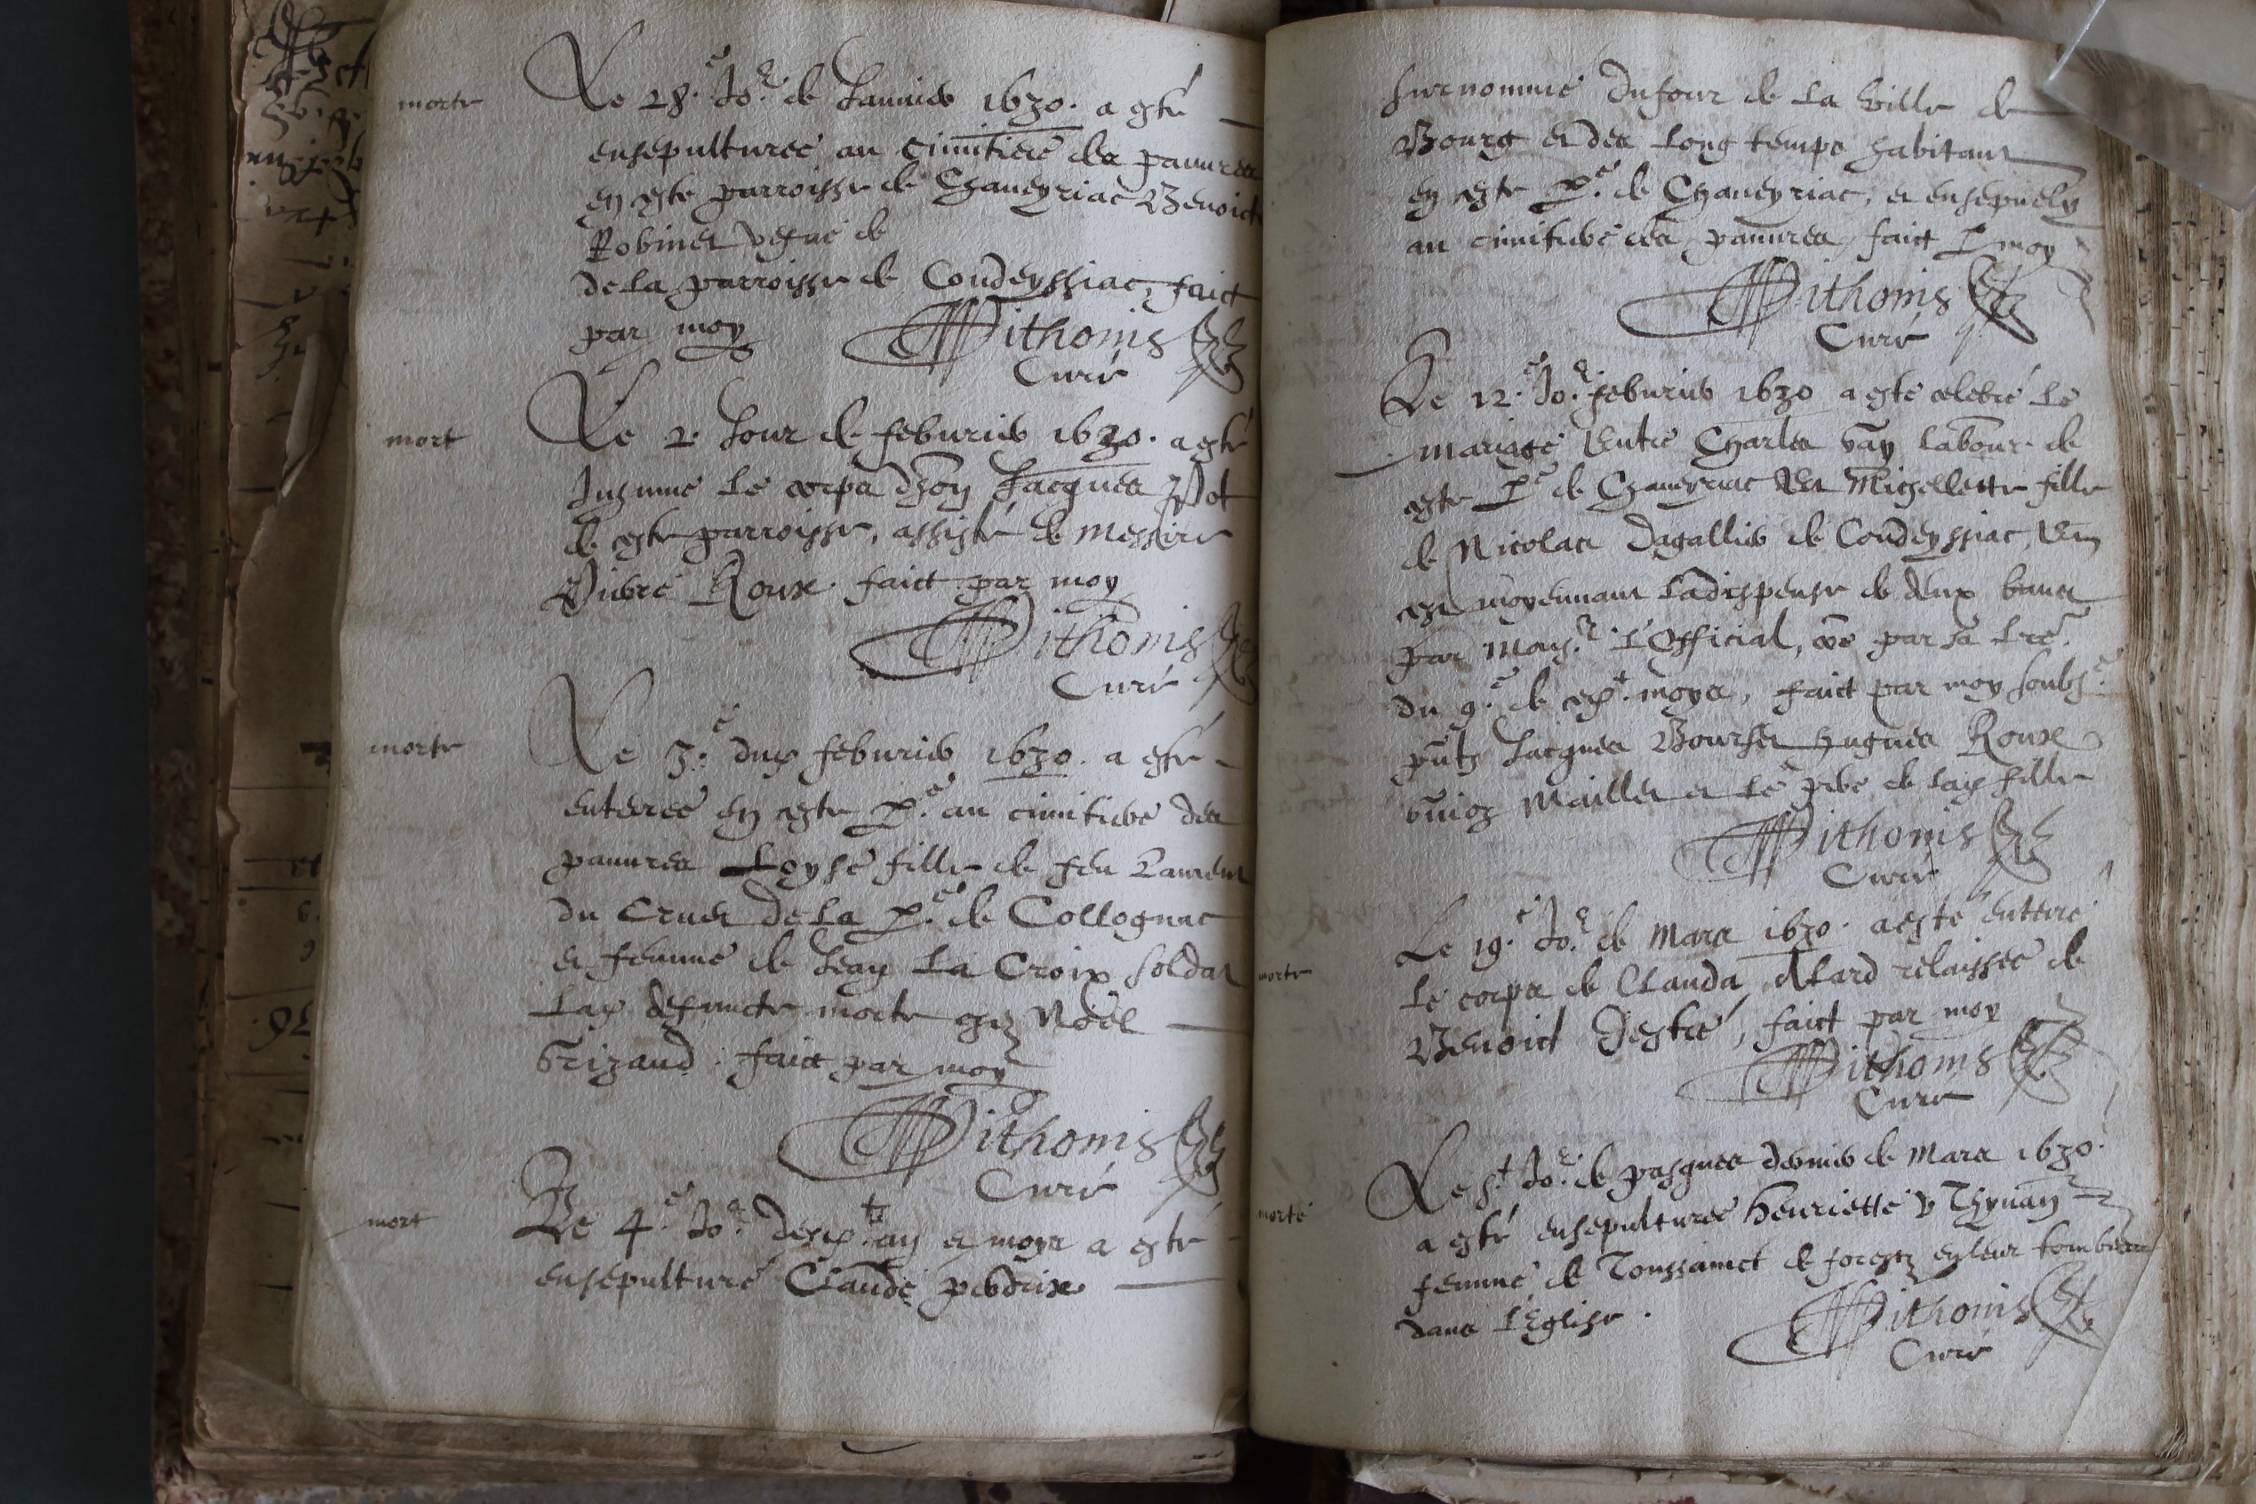 morte
Le 28.e Jo.r de Januier 1630. a esté
ensepulturee au cimitiere des pauures
en ceste parroisse de Chaueyriac Benoicte
Robinet vefue de
de la parroisse de Condeyssiac, faict
par moy Pithonis
Curé
mort
Le 2 Jour de feburier 1630. a esté
Inhumé le corps d'hon Jacques Pot
de ceste parroisse, assisté de messire
Pierre Roux. faict par moy
Pithonis
Curé
morte
Le 3.e dud feburier 1630. a esté
enterree en ceste p.e au cimitiere des
pauures Loyse fille de feu Laurent
du Cruet de la p.e de Collognac
et femme de Jean La Croix soldat
lad defuncte morte chez Noël
Grizaud. faict par moy
Pithonis
Curé
mort
Le 4.e Jo.r desd. an et moys a esté
ensepulturé Claude perdrix
surnommé Dufour de la ville de
Bourg et des long temps habitant
en ceste p.e de Chaueyriac, et ensepuely
au cimitiere des pauures, faict p moy
Pithonis
Curé
Le 12.e Jo.r feburier 1630 a esté celebré le
mariage entre Charles vay labour. de
ceste p.e de Chaueyriac et Michellette fille
de Nicolas Dagallier de Condeyssiac,
ce moyennant la dispense de deux bancs
par Mons.r l'Official, par sa lre.
du 9.e de ced.t moys, faict par moy soubs.e
pnts Jacques Bourset hugues Roux
Mailler et le pere de lad fille
Pithonis
Curé
morte
Le 19.e Jo.r de Mars 1630. a esté enterré
le corps de Clauda Alard relaissee de
Benoict Destré, faict par moy
Pithonis
Curé
morte
Le s.t Jo.r de pasques dernier de Mars 1630.
a esté ensepulturee henriette Thynan
femme de Toussainct de forestz en leur tombeau
dans l'Eglise.
Pithonis
Curé